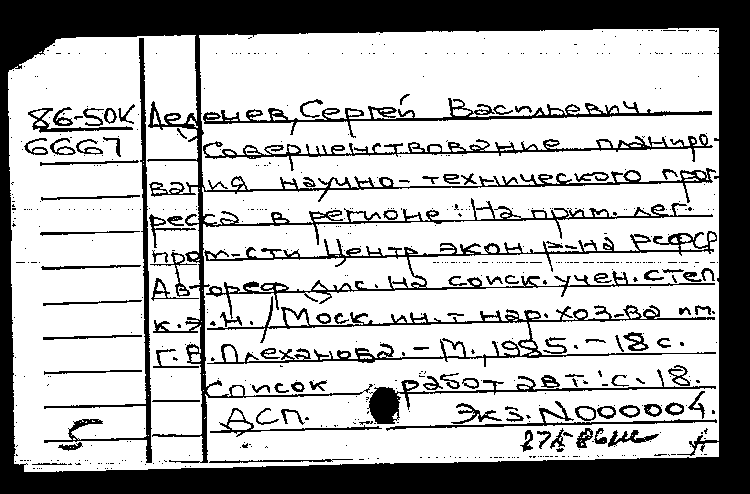 86-50К Деденев, Сергей Васильевич.
6667 Совершенствование планиро-
вания научно-технического прог-
ресса в регионе: На прим. лег.
пром-сти Центр. экон. р-на РСФСР
Автореф. дис. на соиск. учен. степ.
к.э.н. / Моск. ин-т нар. хоз-ва им.
Г.В. Плеханова. - М., 1985. - 18 с.
Список работ авт.: с. 18.
ДСП. Экз. N000004.